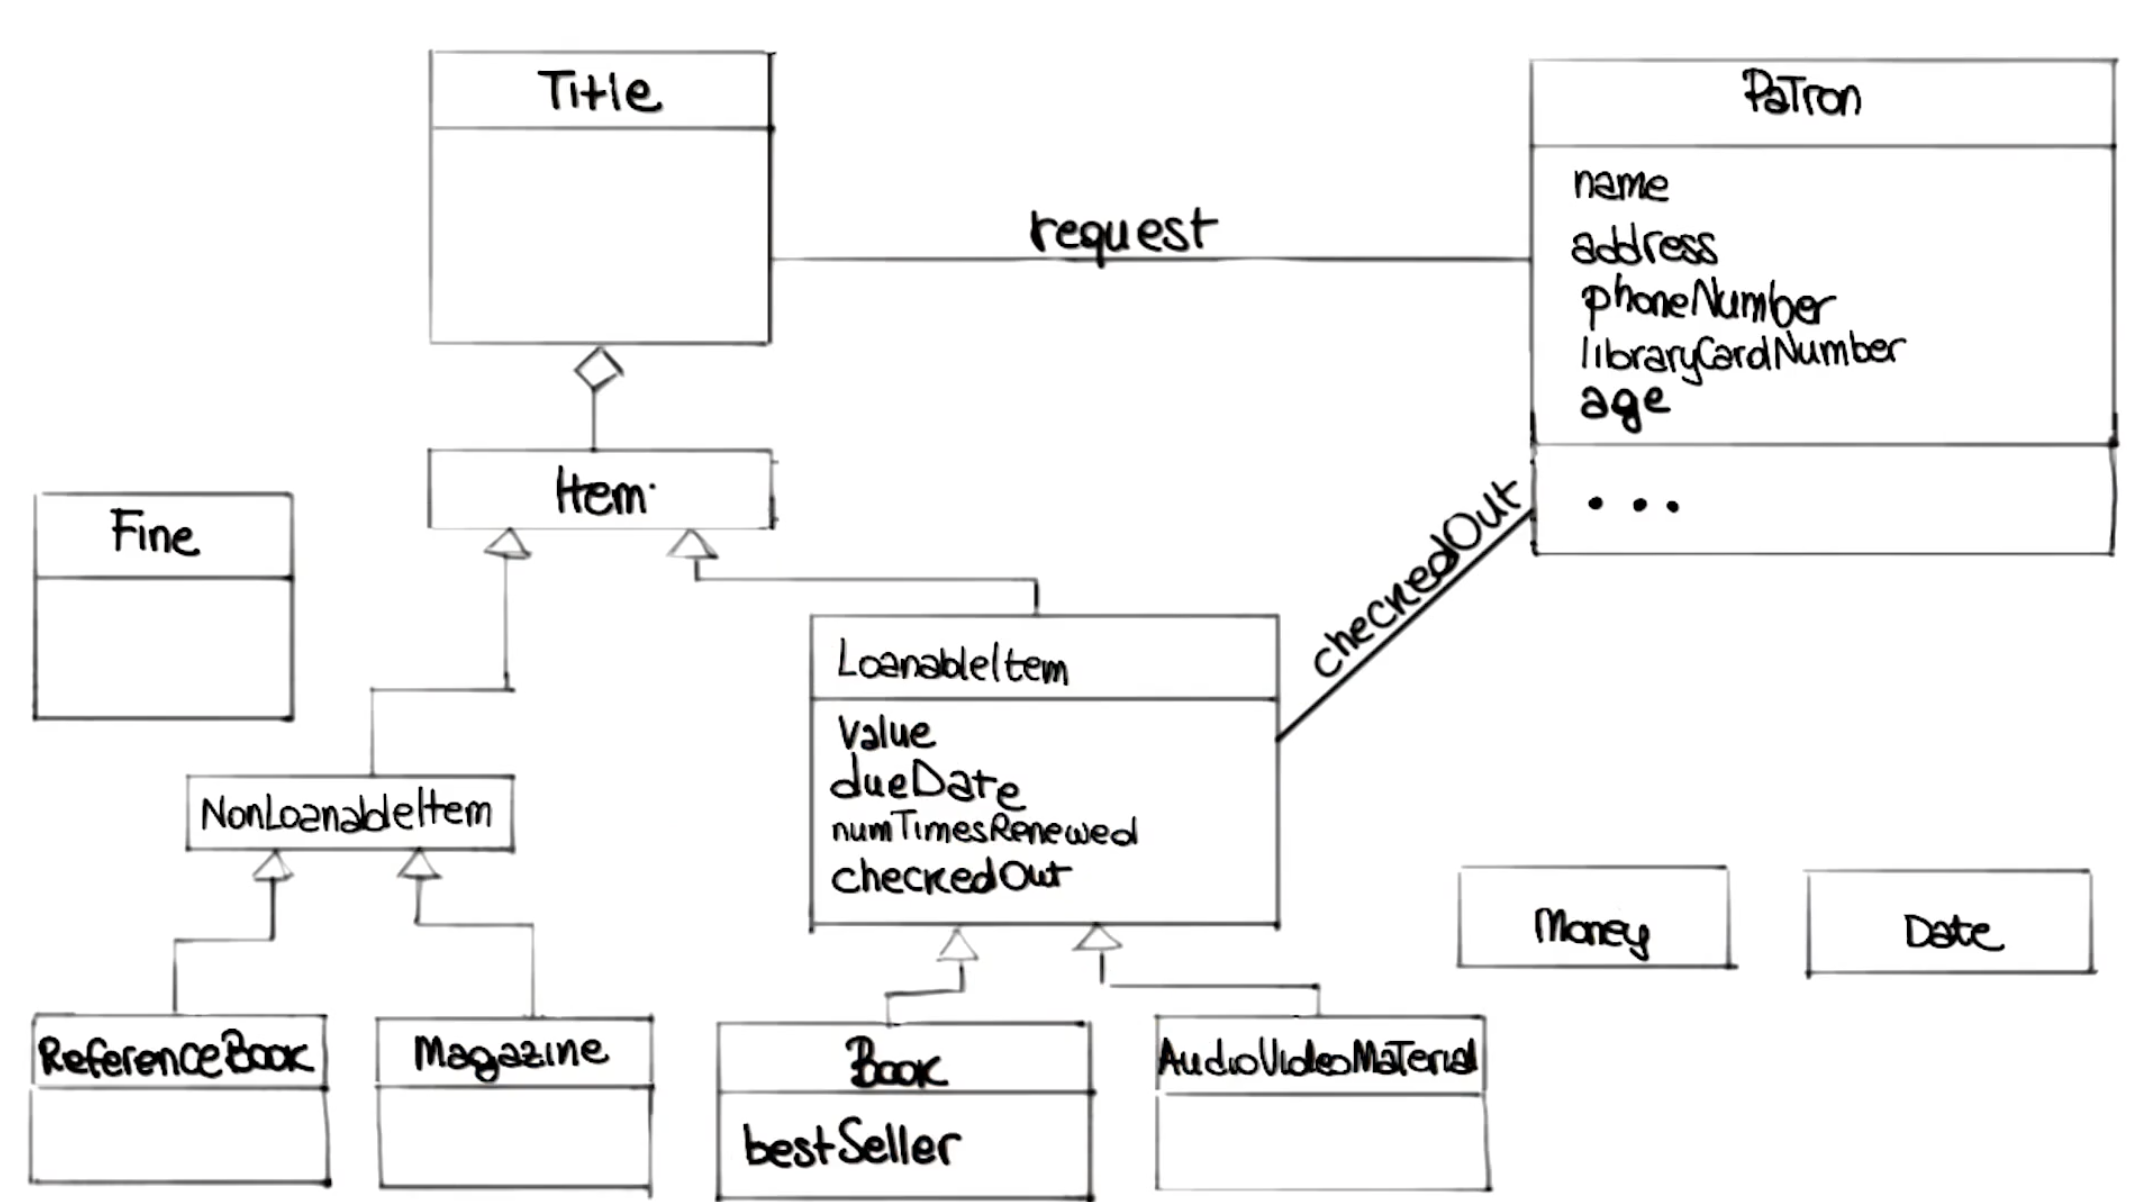 Title
PaTron
name
address
phoneNumber
libraryCardNumber
age
...
request
Item
Fine
checkedOut
LoanableItem
Value
dueDate
numTimesRenewed
checkedOut
NonLoanableItem
Money
Date
ReferenceBook
Magazine
Book
bestSeller
AudioVideoMaTerial